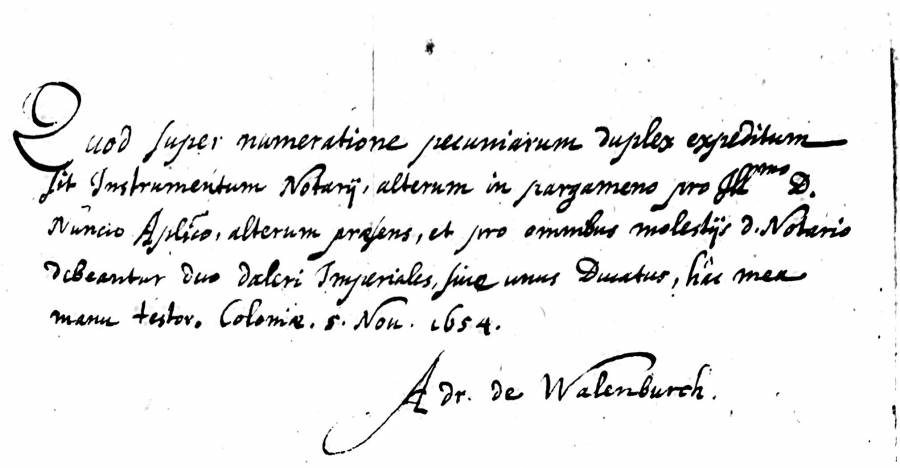 Quod super numeratione pecuniarum duplex expeditum
sit Instrumentum Notarij, alterum in pargameno pro Illmo D.
Nuncio Aplico, alterum præsens, et pro omnibus molestijs d. Notario
debeantur duo daleri Imperiales, sive unus Ducatus, hâc mea
manu testor. Coloniæ. 5. Nov. 1654.
Adr. de Walenburch.